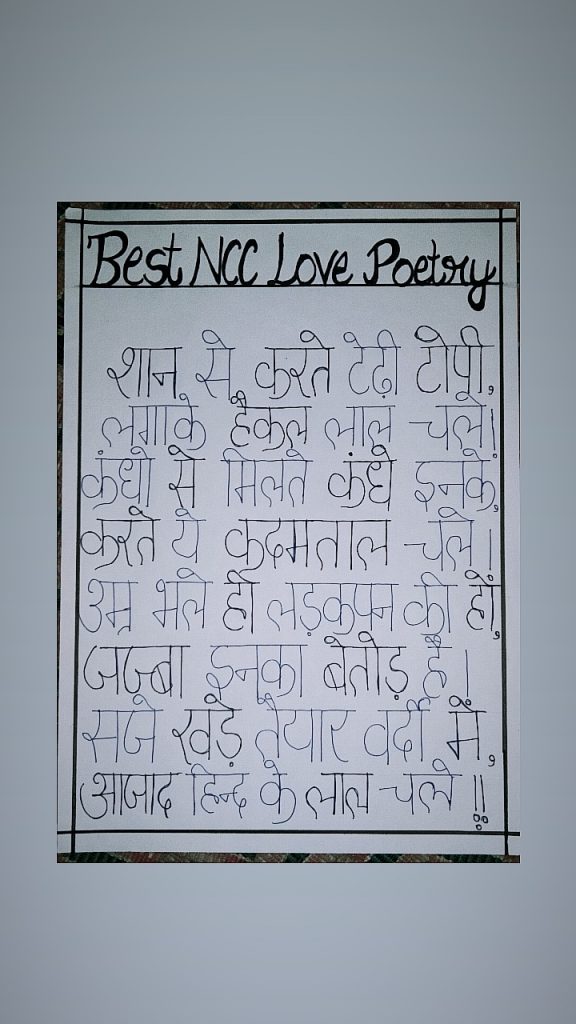 Best NCC Love Poetry
शान से करते टेढ़ी टोपी,
लगाके हैकल लाल चले।
कंधो से मिलते कंधे इनके,
करते ये कदमताल चले।
उम्र भले ही लड़कपन की हो,
जज्बा इनका बेतोड़ है।
सजे खड़े तैयार वर्दी में,
आजाद हिन्द के लाल चले !!